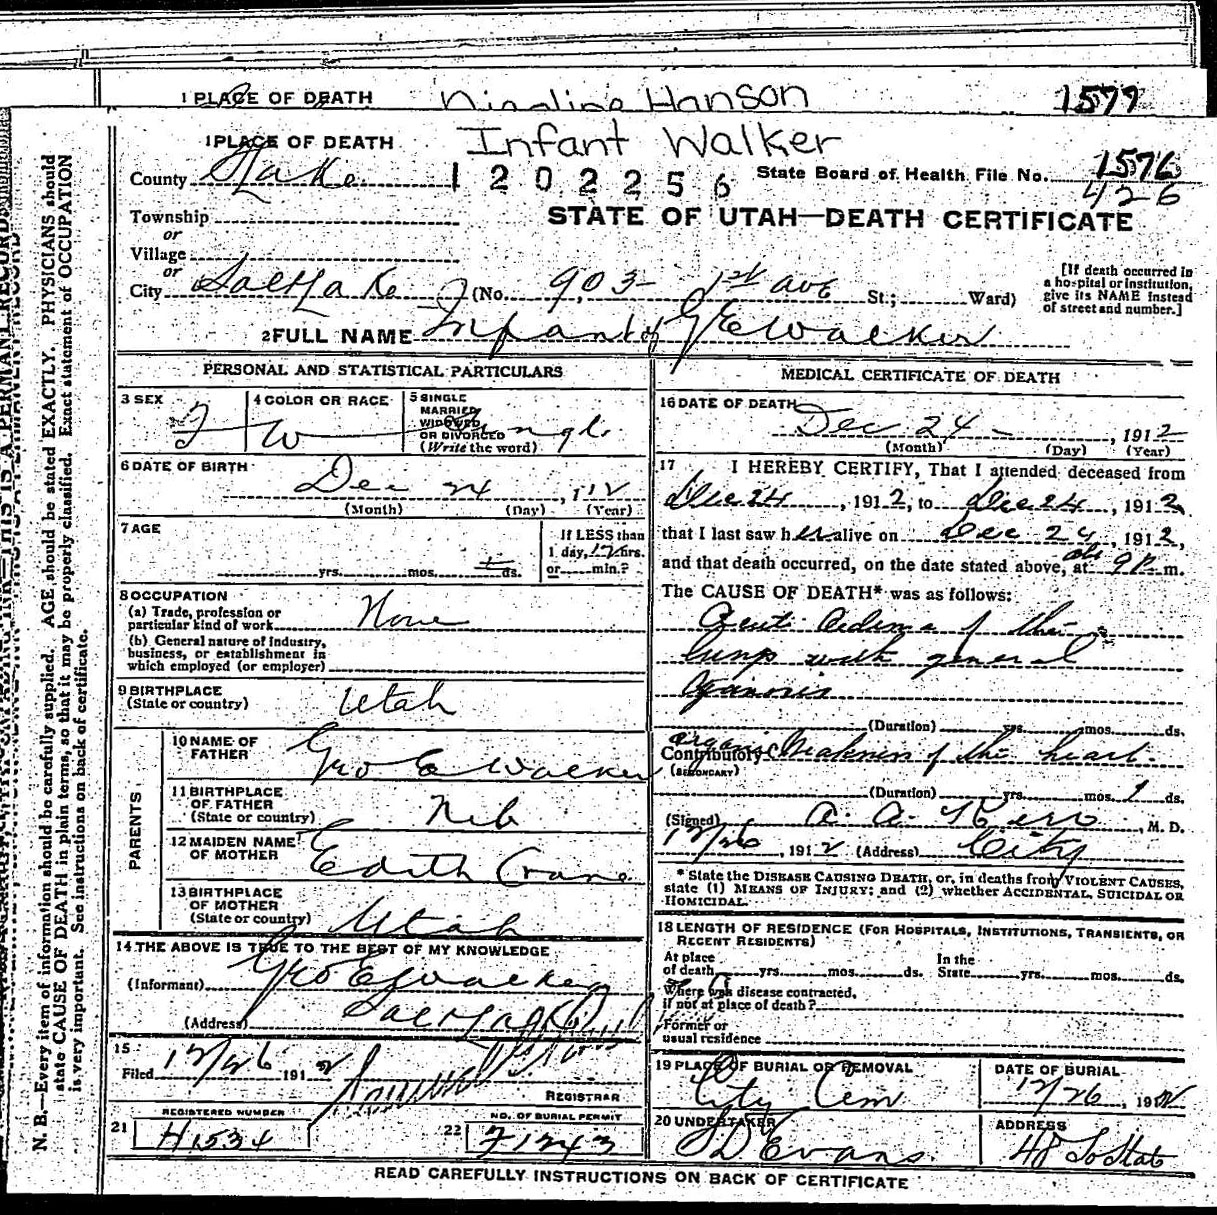 1 PLACE OF DEATH Hanson 1577
1 PLACE OF DEATH Infant Walker
County S Lake 1202256 State Board of Health File No. 1576
426
Township
or
STATE OF UTAH—DEATH CERTIFICATE
Village
or
City Salt Lake (No. 903 1st ave St.; Ward)
[If death occurred in
a hospital or institution,
give its NAME instead
of street and number.]
2 FULL NAME Infant of G E Walker
PERSONAL AND STATISTICAL PARTICULARS
3 SEX F
4 COLOR OR RACE W
5 SINGLE
MARRIED
WIDOWED
OR DIVORCED
(Write the word) Single
6 DATE OF BIRTH
Dec 24, 1912
(Month) (Day) (Year)
7 AGE
yrs. mos. ds.
If LESS than
1 day, 12 hrs.
or min.?
8 OCCUPATION
(a) Trade, profession or
particular kind of work None
(b) General nature of industry,
business, or establishment in
which employed (or employer)
9 BIRTHPLACE
(State or country) Utah
PARENTS
10 NAME OF
FATHER Geo E Walker
11 BIRTHPLACE
OF FATHER
(State or country) Neb
12 MAIDEN NAME
OF MOTHER Edith Crane
13 BIRTHPLACE
OF MOTHER
(State or country) Utah
14 THE ABOVE IS TRUE TO THE BEST OF MY KNOWLEDGE
(Informant) Geo E Walker
(Address) Salt Lake
15
Filed 12/26 1912
REGISTRAR
REGISTERED NUMBER
21 H1534
NO. OF BURIAL PERMIT
22 F1343
MEDICAL CERTIFICATE OF DEATH
16 DATE OF DEATH
Dec 24, 1912
(Month) (Day) (Year)
17 I HEREBY CERTIFY, That I attended deceased from
Dec 24, 1912, to Dec 24, 1912
that I last saw her alive on Dec 24, 1912,
and that death occurred, on the date stated above, at 9 P m.
The CAUSE OF DEATH* was as follows:
Acute Oedema of the
lungs with general
Cyanosis
(Duration) yrs. mos. ds.
Contributory Organic Weakness of the heart.
(SECONDARY)
(Duration) yrs. mos. 1 ds.
(Signed) A. A. Kerr, M. D.
12/26, 1912 (Address) City
* State the DISEASE CAUSING DEATH, or, in deaths from VIOLENT CAUSES,
state (1) MEANS OF INJURY; and (2) whether ACCIDENTAL, SUICIDAL OR
HOMICIDAL.
18 LENGTH OF RESIDENCE (FOR HOSPITALS, INSTITUTIONS, TRANSIENTS, OR
RECENT RESIDENTS)
At place
of death yrs. mos. ds.
In the
State yrs. mos. ds.
Where was disease contracted,
if not at place of death?
Former or
usual residence
19 PLACE OF BURIAL OR REMOVAL
City Cem
DATE OF BURIAL
12/26, 1912
20 UNDERTAKER
D Evans
ADDRESS
48 So State
READ CAREFULLY INSTRUCTIONS ON BACK OF CERTIFICATE
N. B.—Every item of information should be carefully supplied. AGE should be stated EXACTLY. PHYSICIANS should
state CAUSE OF DEATH in plain terms, so that it may be properly classified. Exact statement of OCCUPATION
is very important. See instructions on back of certificate.